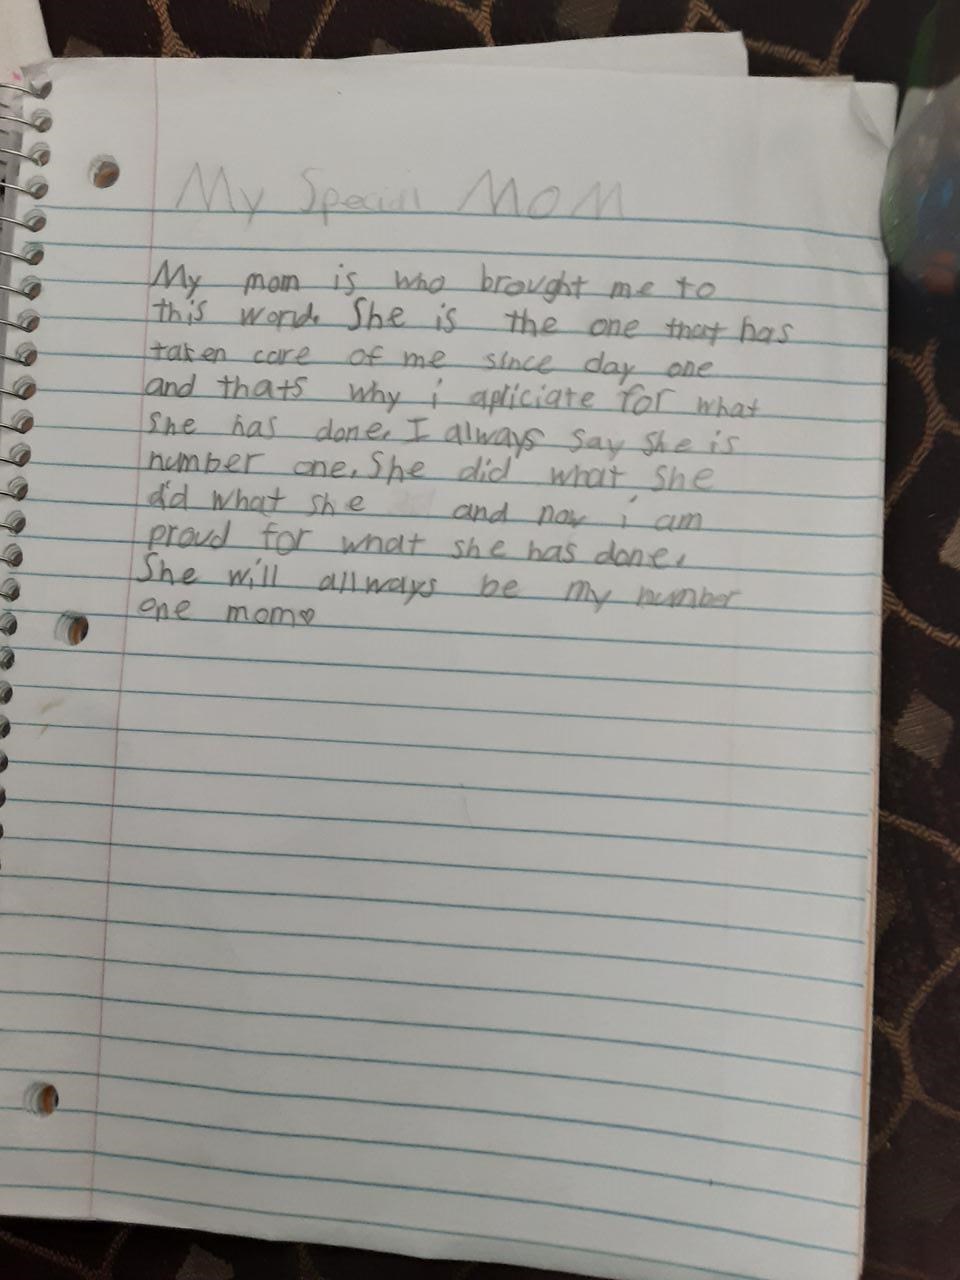 My Special MOM
My mom is who brought me to
this word. She is the one that has
taken care of me since day one
and thats why i apliciate for what
she has done. I always say she is
number one. She did what she
did what she and now i am
proud for what she has done.
She will allways be my number
one mom♡